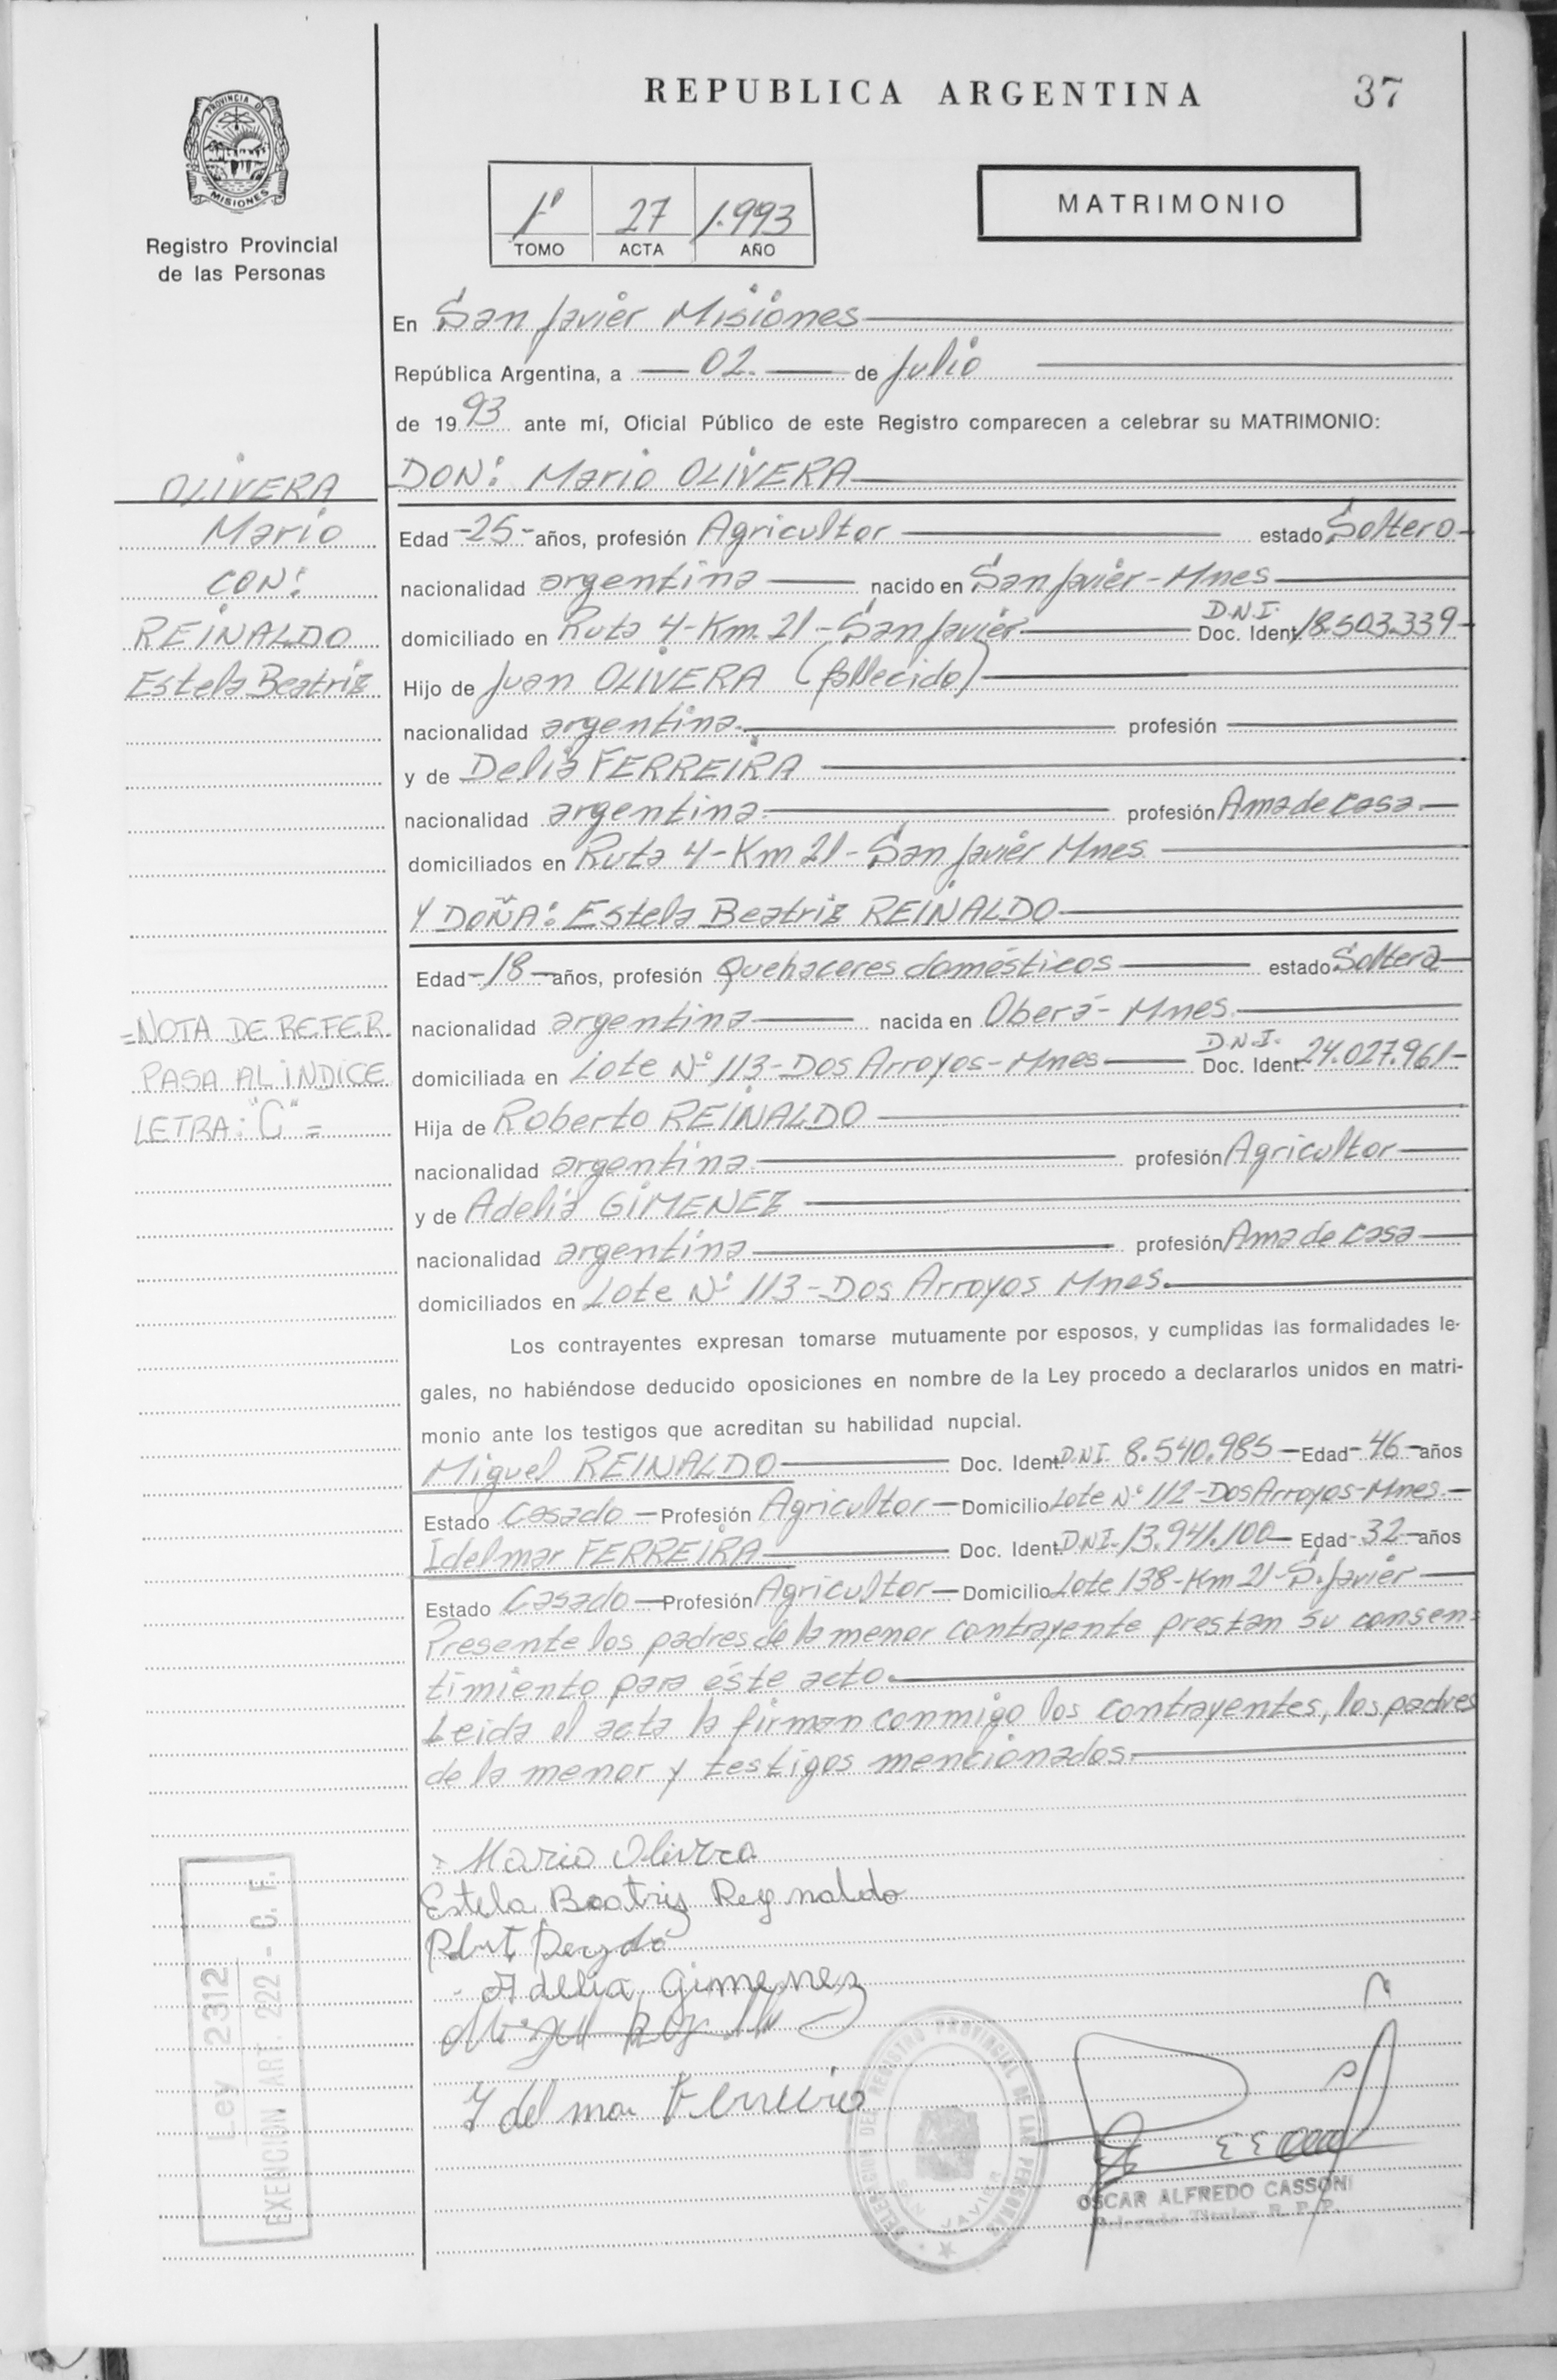 REPUBLICA ARGENTINA
37
PROVINCIA DE
MISIONES
Registro Provincial
de las Personas
1º 27 1.993
TOMO ACTA AÑO
MATRIMONIO
En San Javier Misiones
República Argentina, a 02. de Julio
de 1993 ante mí, Oficial Público de este Registro comparecen a celebrar su MATRIMONIO:
OLIVERA
Mario
CON:
REINALDO
Estela Beatriz
DON: Mario OLIVERA
Edad -25- años, profesión Agricultor estado Soltero-
nacionalidad argentina nacido en San Javier-Mnes
domiciliado en Ruta 4-Km. 21-San Javier D.N.I. Doc. Ident. 18.503.339-
Hijo de Juan OLIVERA (fallecido)
nacionalidad argentina. profesión
y de Delia FERREIRA
nacionalidad argentina. profesión Ama de casa.
domiciliados en Ruta 4-Km 21-San Javier Mnes
Y DOÑA: Estela Beatriz REINALDO
Edad -18- años, profesión Quehaceres domésticos estado Soltera
nacionalidad argentina nacida en Oberá-Mnes.
domiciliada en Lote Nº 113-Dos Arroyos-Mnes D.N.I. Doc. Ident. 24.027.961-
Hija de Roberto REINALDO
nacionalidad argentina. profesión Agricultor
y de Adelia GIMENEZ
nacionalidad argentina profesión Ama de casa
domiciliados en Lote Nº 113-Dos Arroyos Mnes.
=NOTA DE REFER.
PASA AL INDICE
LETRA: "C" =
Los contrayentes expresan tomarse mutuamente por esposos, y cumplidas las formalidades le-
gales, no habiéndose deducido oposiciones en nombre de la Ley procedo a declararlos unidos en matri-
monio ante los testigos que acreditan su habilidad nupcial.
Miguel REINALDO Doc. Ident. D.N.I. 8.540.985 Edad -46- años
Estado Casado Profesión Agricultor Domicilio Lote Nº 112-Dos Arroyos-Mnes.
Idelmar FERREIRA Doc. Ident. D.N.I. 13.941.100 Edad -32- años
Estado Casado Profesión Agricultor Domicilio Lote 138-Km 21-S. Javier
Presente los padres de la menor contrayente prestan su consen=
timiento para éste acto.
Leida el acta la firman conmigo los contrayentes, los padres
de la menor y testigos mencionados.
Mario Olivera
Estela Beatriz Reynaldo
Adelia Gimenez
Idelmar Ferreira
Ley 2312
EXENCION ART. 222 - C. F.
DELEGACION DEL REGISTRO PROVINCIAL DE LAS PERSONAS
SAN JAVIER
OSCAR ALFREDO CASSONI
Delegado Titular R. P. P.